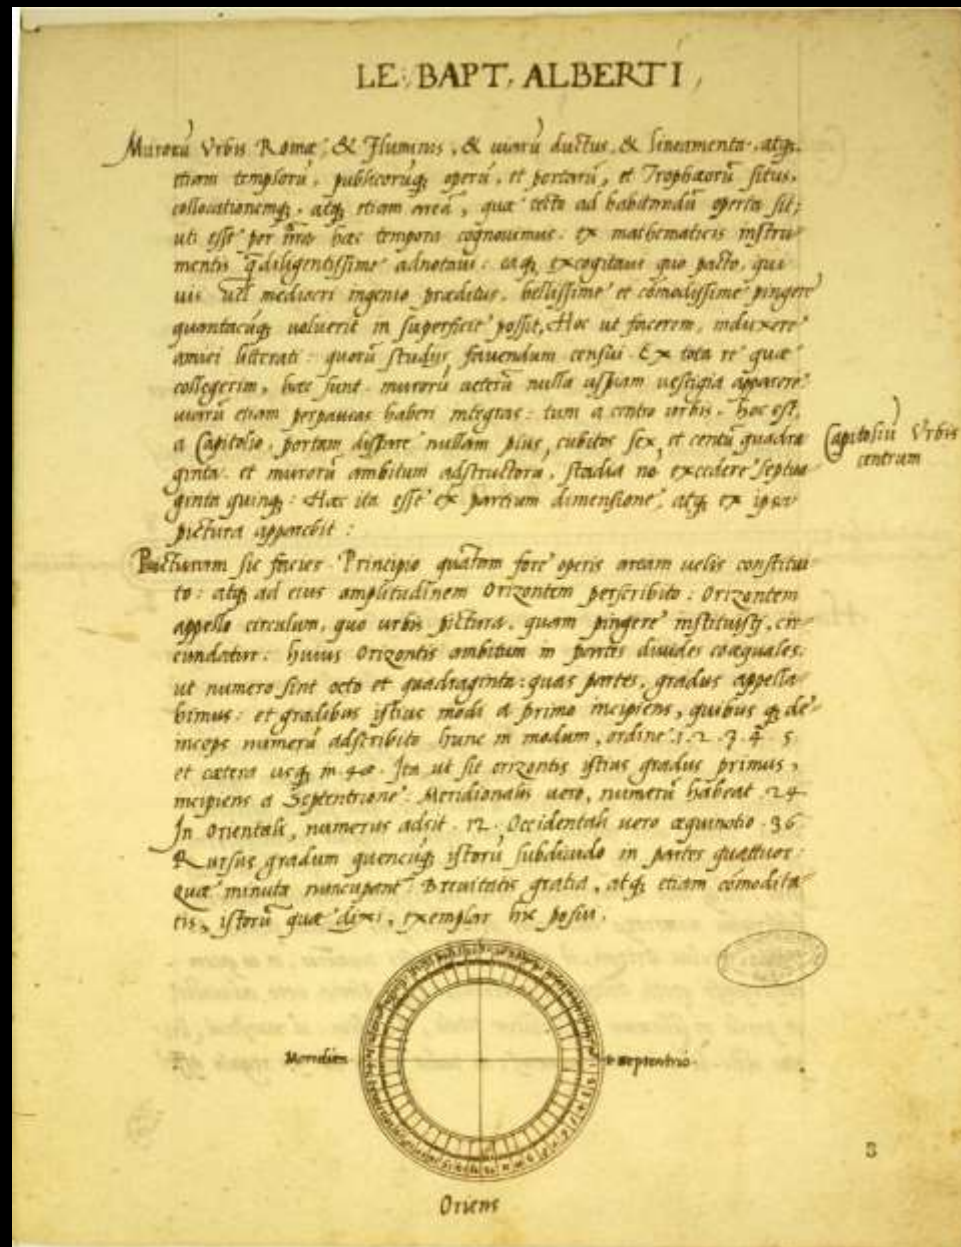 LE. BAPT. ALBERTI
Murorũ Vrbis Romæ, & Fluminis, & uiarũ ductus, & lineamenta, atq;
etiam templorũ, publicorũq; operũ, et portarũ, et Trophæorũ situs,
collocationemq;, atq; etiam areã, quæ tecto ad habitandũ operta sit;
uti esse per nr̃a hæc tempora cognouimus. ex mathematicis instru-
mentis q̃ diligentissime adnotaui: eaq; excogitaui quo pacto, qui
uis uel mediocri ingenio præditus, bellissime et cõmodissime pingere
quantacũq; uoluerit in superficie possit. Hoc ut facerem, induxere
amici litterati: quorũ studijs fauendum censui. Ex tota re quæ
collegerim, hæc sunt. murorũ ueterũ nulla uspiam uestigia apparere
uiarũ etiam perpaucas haberi integras: tum a centro urbis. hoc est,
a Capitolio, portam distare nullam plus, cubitos sex, et centũ quadra
Capitoliũ Vrbis
centrum
ginta. et murorũ ambitum adstructorũ, stadia no excedere septua
ginta quinq;: Hæc ita esse ex partium dimensione, atq; ex ipsa
pictura apparebit:
Picturam sic facies. Principio quãtam fore operis aream uelis constitui
to: atq; ad eius amplitudinem Orizontem perscribito: Orizontem
appello circulum, quo urbis pictura, quam pingere instituisti, cir
cundatur: huius Orizontis ambitum in partes diuides coæquales.
ut numero sint octo et quadraginta: quas partes, gradus appella
bimus: et gradibus istius modi a primo incipiens, quibus q; de
inceps numerũ adscribito hunc in modum, ordine .1. 2. 3. 4. 5.
et cætera usq; in 48. Ita ut sit orizontis istius gradus primus,
incipiens a Septentrione. Meridionalis uero, numerũ habeat .24.
In Orientali, numerus adsit .12. Occidentali uero æquinotio .36.
Rursus gradum quencũq; istorũ subdiuido in partes quattuor:
Quæ minuta nuncupant. Breuitatis gratia, atq; etiam cõmodita
tis, istorũ quæ dixi, exemplar hic posui.
Meridies
Septentrio
Oriens
3